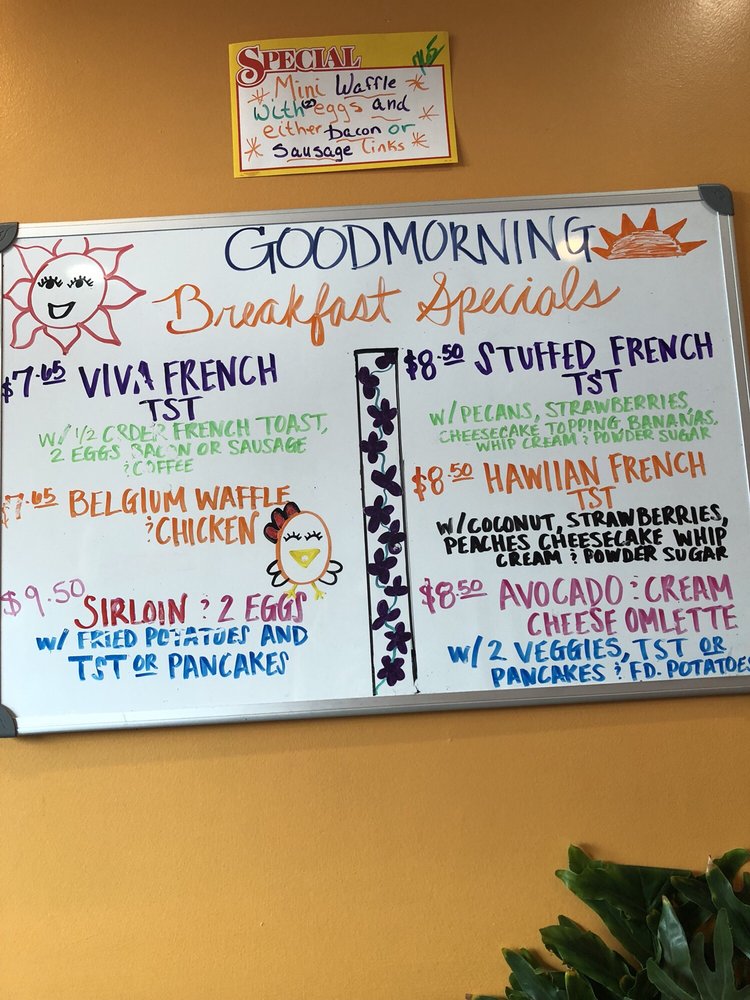 SPECIAL
Mini Waffle
with eggs and
either bacon or
sausage links
GOODMORNING
Breakfast Specials
$7.65 VIVA FRENCH
TST
W/ 1/2 ORDER FRENCH TOAST,
2 EGGS BACON OR SAUSAGE
& COFFEE
$7.65 BELGIUM WAFFLE
& CHICKEN
$9.50 SIRLOIN & 2 EGGS
W/ FRIED POTATOES AND
TST OR PANCAKES
$8.50 STUFFED FRENCH
TST
W/PECANS, STRAWBERRIES,
CHEESECAKE TOPPING, BANANAS,
WHIP CREAM & POWDER SUGAR
$8.50 HAWIIAN FRENCH
TST
W/COCONUT, STRAWBERRIES,
PEACHES CHEESECAKE WHIP
CREAM & POWDER SUGAR
$8.50 AVOCADO & CREAM
CHEESE OMLETTE
W/ 2 VEGGIES, TST OR
PANCAKES & FD. POTATOES